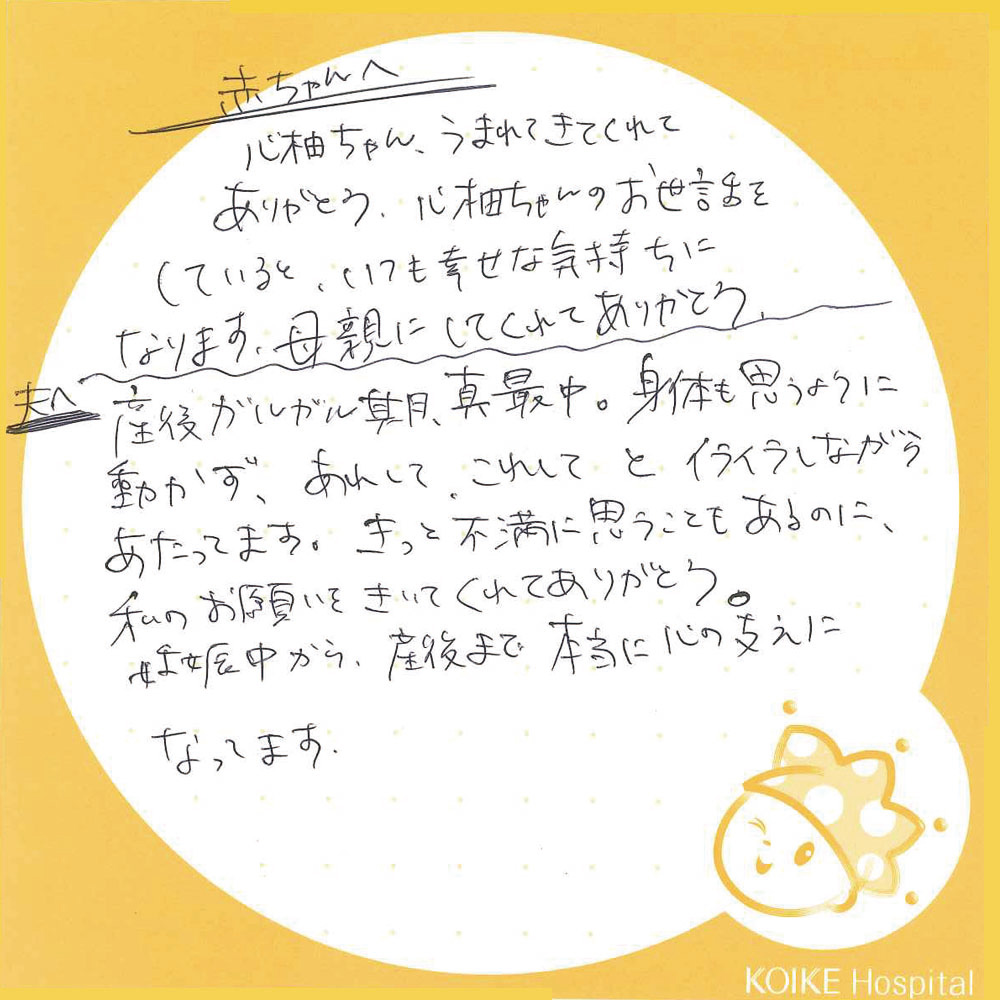 赤ちゃんへ
心柚ちゃん、うまれてきてくれて
ありがとう、心柚ちゃんのお世話を
していると、いつも幸せな気持ちに
なります、母親にしてくれてありがとう、
夫へ
産後ガルガル期、真最中。身体も思うように
動かず、あれして、これして と イライラしながら
あたってます。きっと不満に思うこともあるのに、
私のお願いをきいてくれてありがとう。
妊娠中から、産後まで 本当に心の支えに
なってます.
KOIKE Hospital